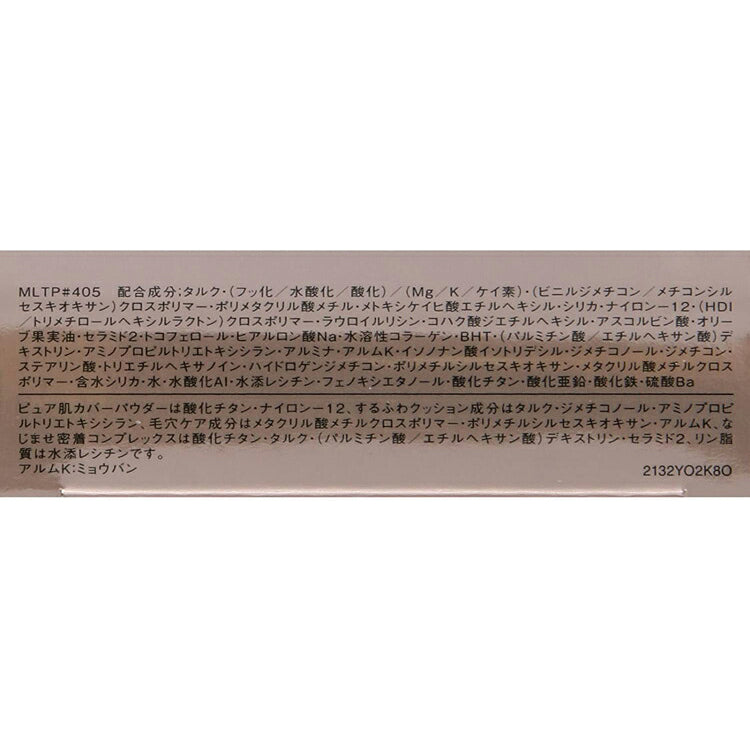 MLTP#405　配合成分:タルク・(フッ化／水酸化／酸化)／(Mg／K／ケイ素)・(ビニルジメチコン／メチコンシル
セスキオキサン)クロスポリマー・ポリメタクリル酸メチル・メトキシケイヒ酸エチルヘキシル・シリカ・ナイロン－12・(HDI
／トリメチロールヘキシルラクトン)クロスポリマー・ラウロイルリシン・コハク酸ジエチルヘキシル・アスコルビン酸・オリー
ブ果実油・セラミド2・トコフェロール・ヒアルロン酸Na・水溶性コラーゲン・BHT・(パルミチン酸／エチルヘキサン酸)デ
キストリン・アミノプロピルトリエトキシシラン・アルミナ・アルムK・イソノナン酸イソトリデシル・ジメチコノール・ジメチコン・
ステアリン酸・トリエチルヘキサノイン・ハイドロゲンジメチコン・ポリメチルシルセスキオキサン・メタクリル酸メチルクロス
ポリマー・含水シリカ・水・水酸化Al・水添レシチン・フェノキシエタノール・酸化チタン・酸化亜鉛・酸化鉄・硫酸Ba
ピュア肌カバーパウダーは酸化チタン・ナイロン－12、するふわクッション成分はタルク・ジメチコノール・アミノプロピ
ルトリエトキシシラン、毛穴ケア成分はメタクリル酸メチルクロスポリマー・ポリメチルシルセスキオキサン・アルムK、な
じませ密着コンプレックスは酸化チタン・タルク・(パルミチン酸／エチルヘキサン酸)デキストリン・セラミド2、リン脂
質は水添レシチンです。
アルムK:ミョウバン　2132YO2K8O